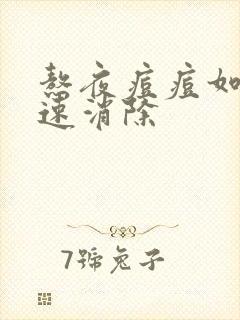 熬夜痘痘如
速消除
7號兔子